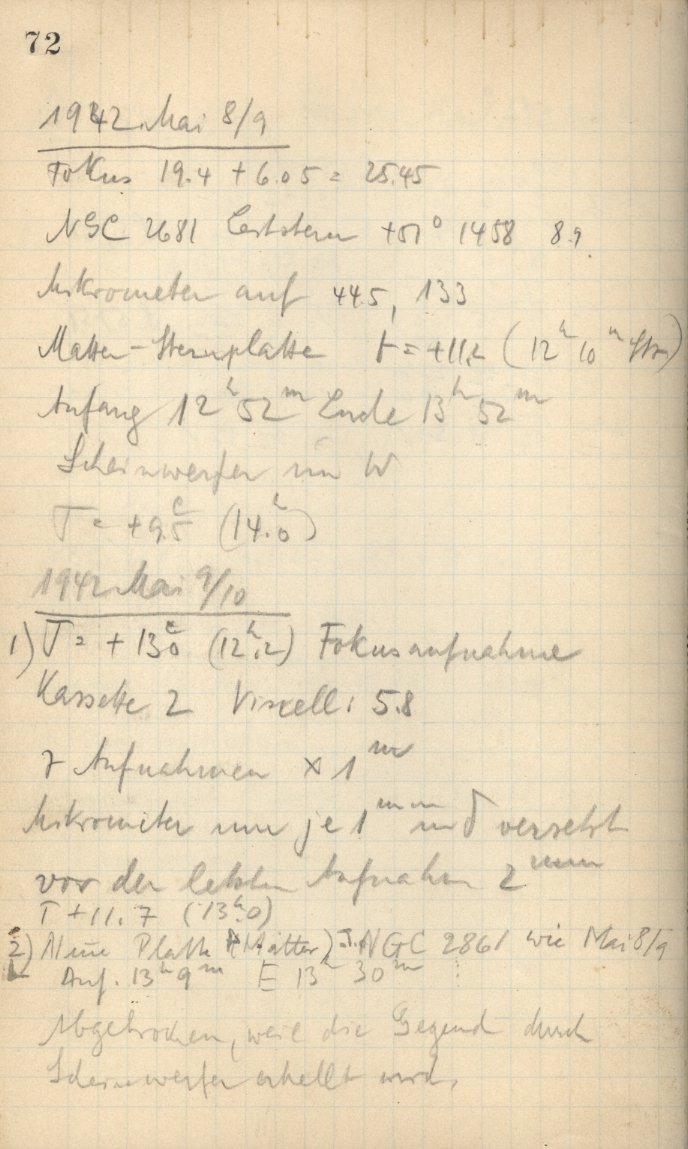 72
1942 Mai 8/9
Fokus 19.4 + 6.05 = 25.45
NGC 2681 Leitstern +51° 1458 8.9
Mikrometer auf 44.5, 133
Matter-Sternplatte t = +11.2 (12ʰ10ᵐ
Anfang 12ʰ 52ᵐ Ende 13ʰ 52ᵐ
Scheinwerfer im W
T = +9.5 (14ʰ.0)
1942 Mai 9/10
1) T = +13.0 (12ʰ.2) Fokusaufnahme
Kassette 2 5.8
7 Aufnahmen x 1ᵐ
Mikrometer um je 1ᵐᵐ in δ versetzt
vor der letzten Aufnahm 2ᵐᵐ
T +11.7 (13ʰ.0)
2) Neue Platte (Matter) NGC 2861 wie Mai 8/9
Anf. 13ʰ 9ᵐ E 13ʰ 30ᵐ
Abgebrochen, weil die Gegend durch
Scheinwerfer erhellt wird.